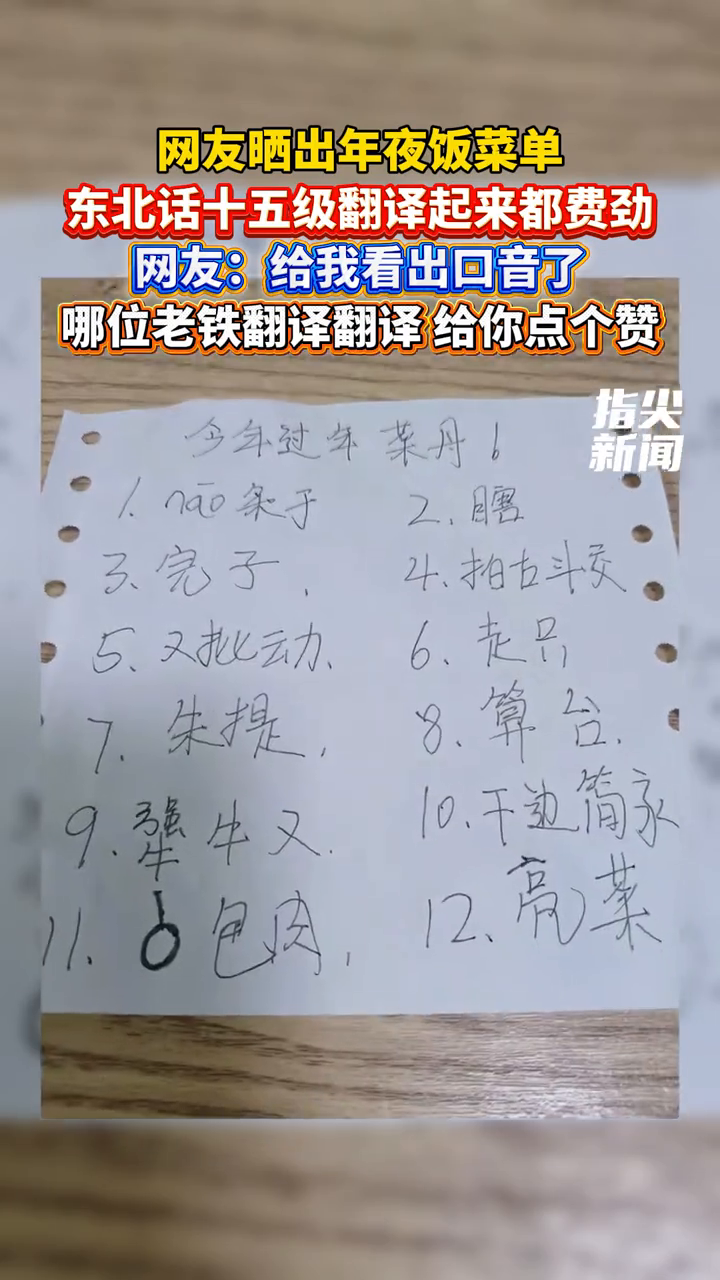 网友晒出年夜饭菜单
东北话十五级翻译起来都费劲
网友：给我看出口音了
哪位老铁翻译翻译 给你点个赞
指尖
新闻
今年过年 菜丹
1. 条子
3. 完子
4. 拍古斗交
5. 又批动
6. 走只
7. 朱提.
8. 算台.
9. 牛又.
10. 干边简家
11. 包肉.
12. 亮菜